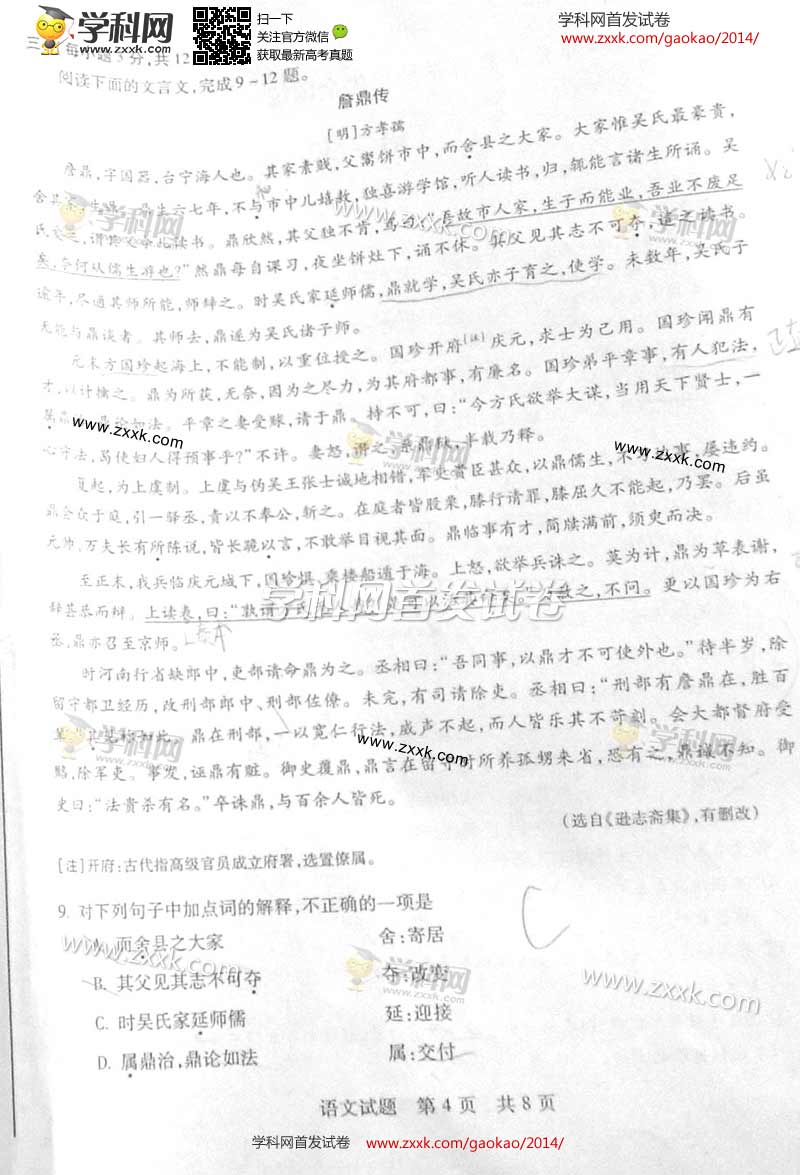 学科网
www.zxxk.com
扫一下
关注官方微信
获取最新高考真题
学科网首发试卷
www.zxxk.com/gaokao/2014/
三、每小题3分,共12
阅读下面的文言文,完成9-12题。
詹鼎传
[明]方孝孺
詹鼎,字国器,台宁海人也。其家素贱,父鬻饼市中,而舍县之大家。大家惟吴氏最豪贵,
舍其 鼎生六七年,不与市中儿嬉敖,独喜游学馆,听人读书,归,辄能言诸生所诵。吴
氏 谓其父令儿读书。鼎欣然,其父独不肯,骂曰:“吾故市人家,生子而能业,吾业不废足
矣,奈何从儒生游也?”然鼎每自课习,夜坐饼灶下,诵不休。其父见其志不可夺,遣之读书。
逾年,尽通其师所能,师辞之。时吴氏家延师儒,鼎就学,吴氏亦子育之,使学。未数年,吴氏子
无能与鼎谈者。其师去,鼎遂为吴氏诸子师。
元末方国珍起海上,不能制,以重位授之。国珍开府[注]庆元,求士为己用。国珍闻鼎有
才,以计擒之。鼎为所获,无奈,因为之尽力,为其府都事,有廉名。国珍弟平章事,有人犯法,
属鼎 鼎论如法。平章之妻受赇,请于鼎。持不可,曰:“今方氏欲举大谋,当用天下贤士,一
心守法,曷使妇人得预事乎?”不许。妻怒,谮之,系鼎狱,半载乃释。
复起,为上虞制。上虞与伪吴王张士诚地相错,军吏贵臣甚众,以鼎儒生,不 事,屡违约。
鼎会众于庭,引一驿丞,责以不奉公,斩之。在庭者皆股栗,膝行请罪,膝屈久不能起,乃罢。后虽
元帅、万夫长有所陈说,皆长跪以言,不敢举目视其面。鼎临事有才,简牍满前,须臾而决。
至正末,我兵临庆元城下,国珍惧,乘楼船遁于海。上怒,欲举兵诛之。莫为计,鼎为草表谢,
辞甚恭而辩。上读表,曰:“孰谓方氏 赦之,不问。更以国珍为右
丞,鼎亦召至京师。
时河南行省缺郎中,吏部请命鼎为之。丞相曰:“吾同事,以鼎才不可使外也。”待半岁,除
留守都卫经历,改刑部郎中、刑部佐僚。未完,有司请除吏。丞相曰:“刑部有詹鼎在,胜百
吏。”其 鼎在刑部,一以宽仁行法,威声不起,而人皆乐其不苛刻。会大都督府受
黥,除军吏。事发,诬鼎有赃。御史覆鼎,鼎言在留守时所养孤甥来省,恐有之,鼎诚不知。御
史曰:“法贵杀有名。”卒诛鼎,与百余人皆死。
(选自《逊志斋集》,有删改)
[注]开府:古代指高级官员成立府署,选置僚属。
9. 对下列句子中加点词的解释,不正确的一项是
C
A. 而舍县之大家 舍:寄居
B. 其父见其志不可夺 夺:改变
C. 时吴氏家延师儒 延:迎接
D. 属鼎治,鼎论如法 属:交付
语文试题 第4页 共8页
学科网首发试卷
www.zxxk.com/gaokao/2014/